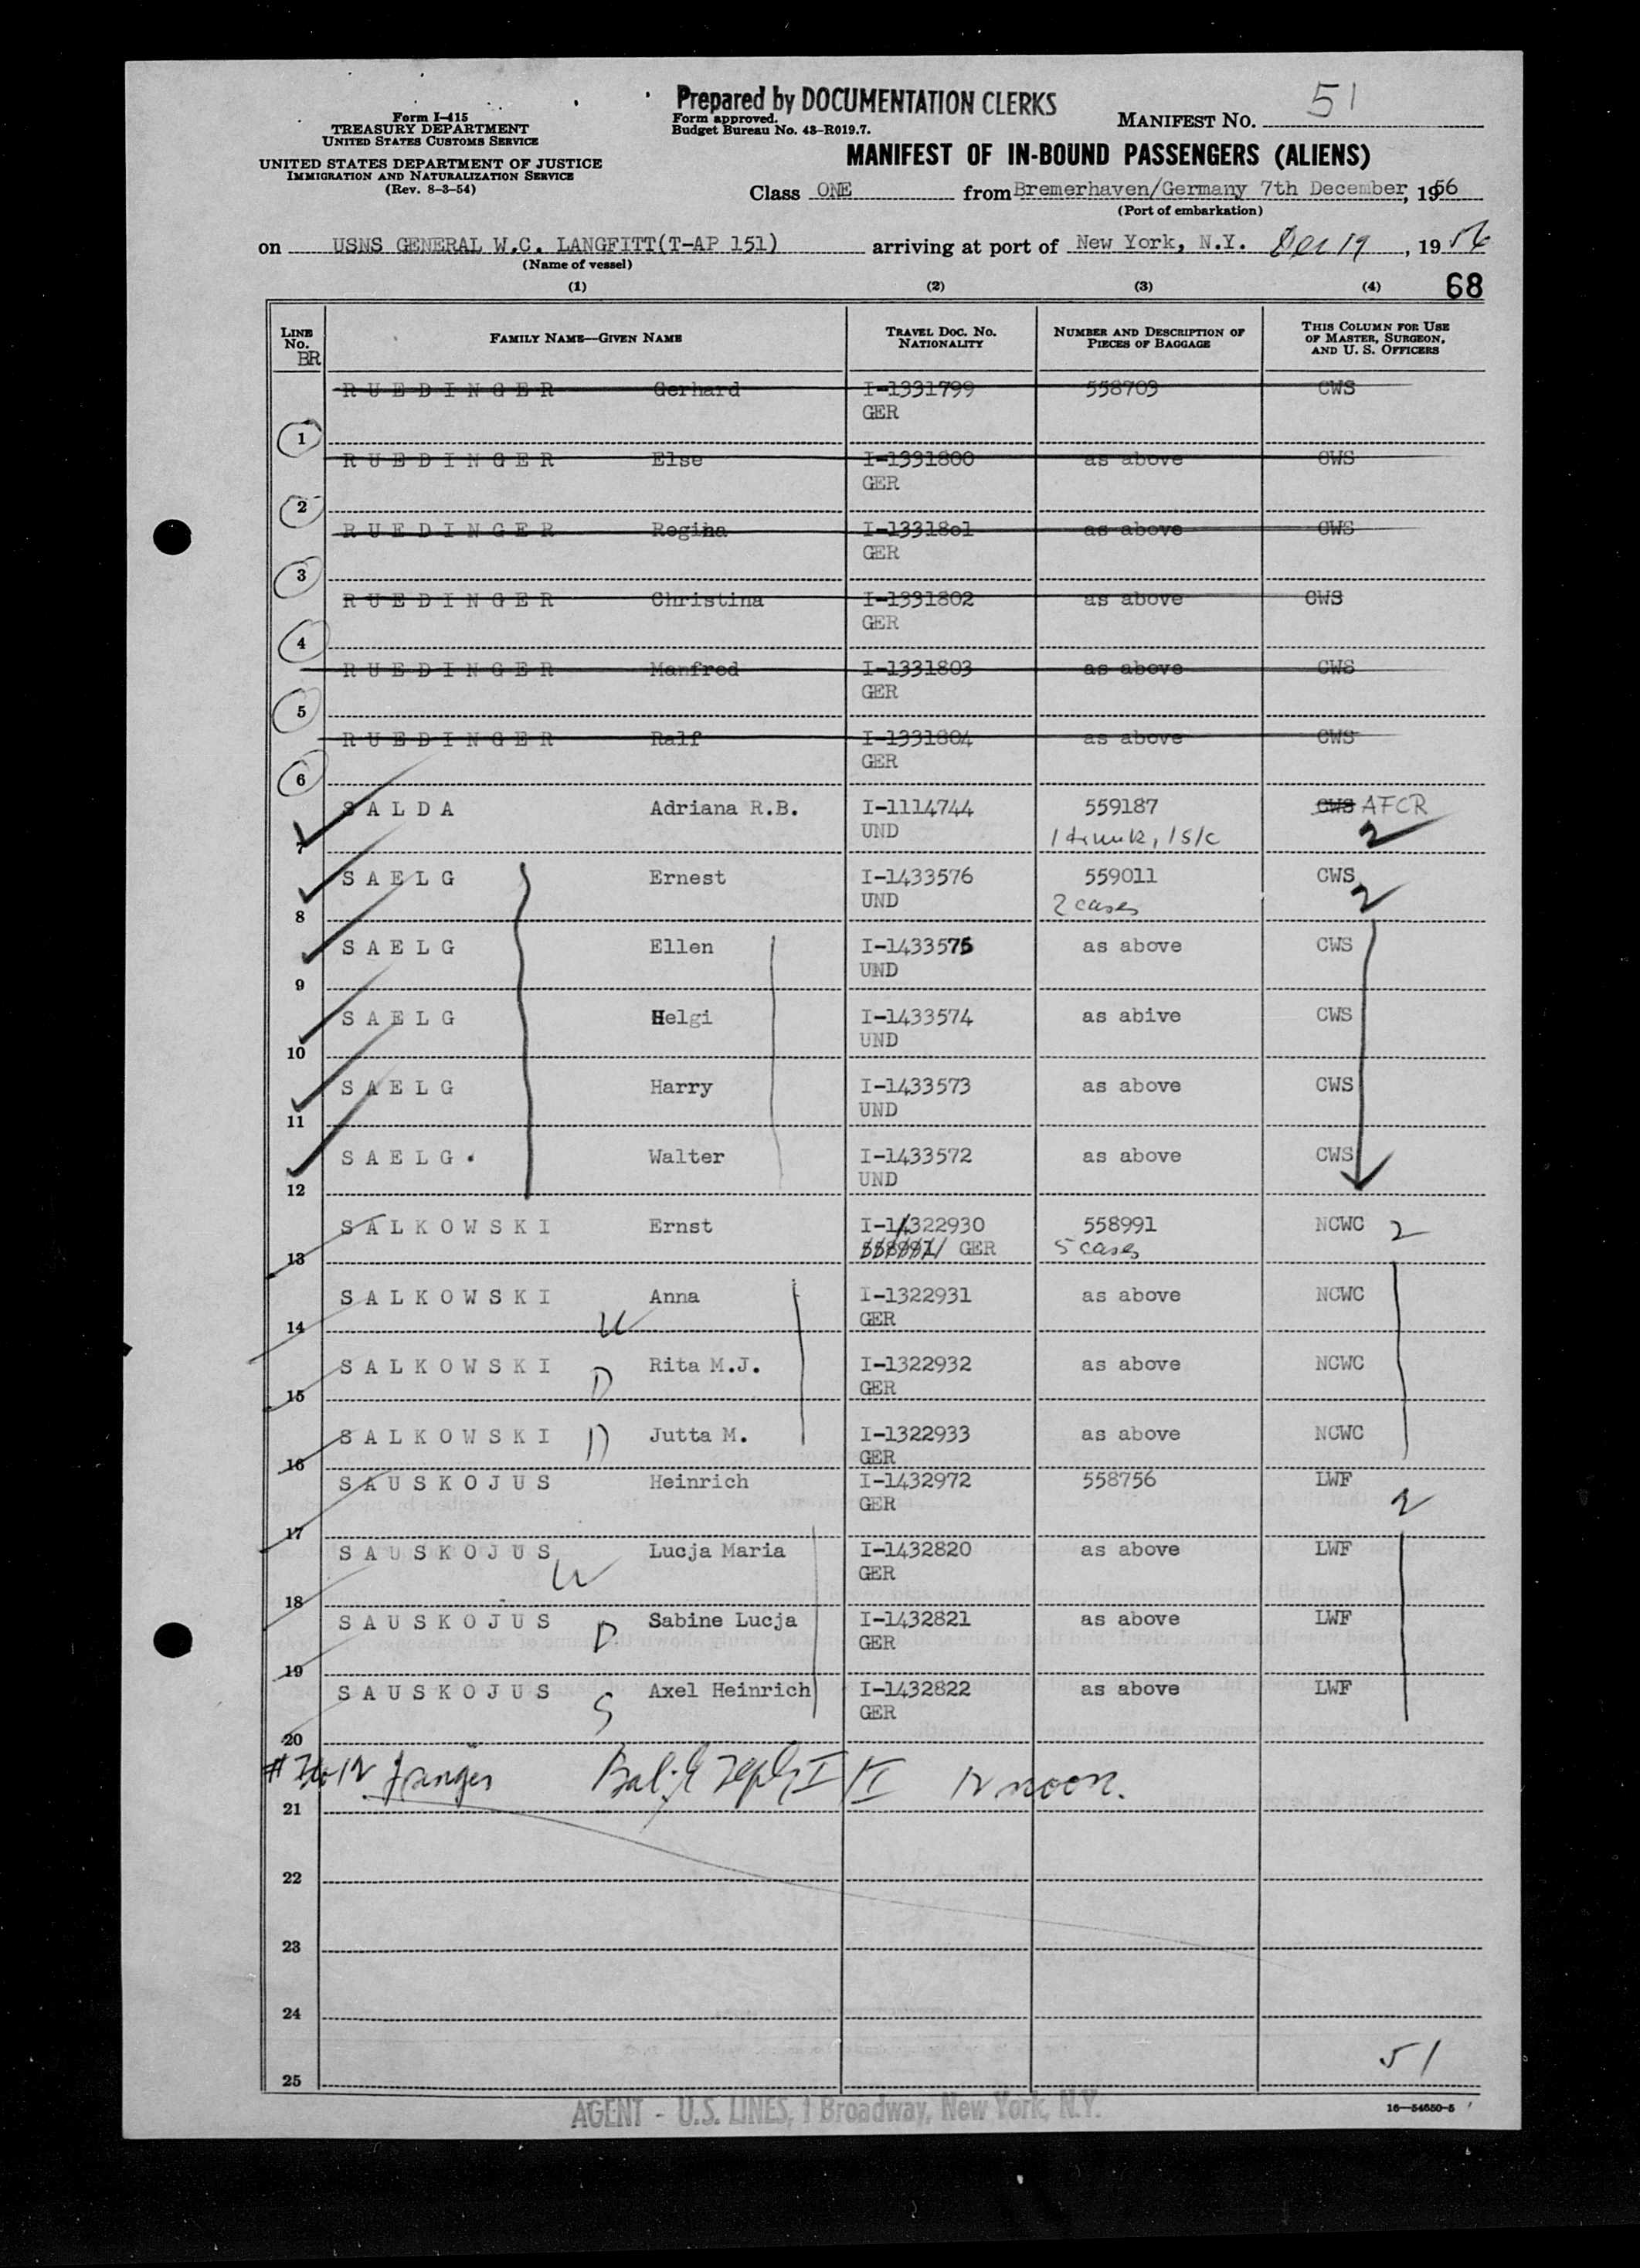 Prepared by DOCUMENTATION CLERKS
Form I-415
TREASURY DEPARTMENT
UNITED STATES CUSTOMS SERVICE
UNITED STATES DEPARTMENT OF JUSTICE
IMMIGRATION AND NATURALIZATION SERVICE
(Rev. 8-3-54)
Form approved.
Budget Bureau No. 43-R019.7.
MANIFEST NO. 51
MANIFEST OF IN-BOUND PASSENGERS (ALIENS)
Class ONE from Bremerhaven/Germany 7th December, 1956
(Port of embarkation)
on USNS GENERAL W.C. LANGFITT(T-AP 151) arriving at port of New York, N.Y. Dec 19, 1956
(Name of vessel)
68
(1) (2) (3) (4)
LINE No. BR FAMILY NAME—GIVEN NAME TRAVEL DOC. NO. NATIONALITY NUMBER AND DESCRIPTION OF PIECES OF BAGGAGE THIS COLUMN FOR USE OF MASTER, SURGEON, AND U. S. OFFICERS
R U E D I N G E R Gerhard I-1331799 558703 CWS
GER
1
R U E D I N G E R Else I-1331800 as above CWS
GER
2
R U E D I N G E R Regina I-13318o1 as above CWS
GER
3
R U E D I N G E R Christina I-1331802 as above CWS
GER
4
R U E D I N G E R Manfred I-1331803 as above CWS
GER
5
R U E D I N G E R Ralf I-1331804 as above CWS
GER
6
S A L D A Adriana R.B. I-1114744 559187 CWS AFCR
UND 1 trunk, 1 s/c 2
7
S A E L G Ernest I-1433576 559011 CWS
UND 2 cases 2
8
S A E L G Ellen I-1433575 as above CWS
UND
9
S A E L G Helgi I-1433574 as abive CWS
UND
10
S A E L G Harry I-1433573 as above CWS
UND
11
S A E L G . Walter I-1433572 as above CWS
UND
12
S A L K O W S K I Ernst I-1/322930 558991 NCWC 2
558991 GER 5 cases
13
S A L K O W S K I Anna I-1322931 as above NCWC
W GER
14
S A L K O W S K I Rita M.J. I-1322932 as above NCWC
D GER
15
S A L K O W S K I D Jutta M. I-1322933 as above NCWC
GER
16
S A U S K O J U S Heinrich I-1432972 558756 LWF
GER 2
17
S A U S K O J U S Lucja Maria I-1432820 as above LWF
W GER
18
S A U S K O J U S D Sabine Lucja I-1432821 as above LWF
GER
19
S A U S K O J U S Axel Heinrich I-1432822 as above LWF
S GER
20
12 noon.
21
22
23
24
51
25
AGENT - U.S. LINES, 1 Broadway, New York, N.Y.
16—54650-5